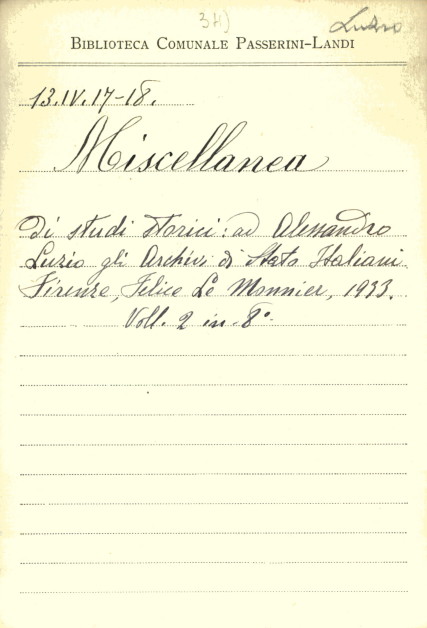 34)
Luzio
BIBLIOTECA COMUNALE PASSERINI-LANDI
13.IV.17-18.
Miscellanea
Di studi storici: ad Alessandro
Luzio gli Archivi di Stato Italiani
Firenze, Felice Le Monnier, 1933.
Voll. 2 in-8°